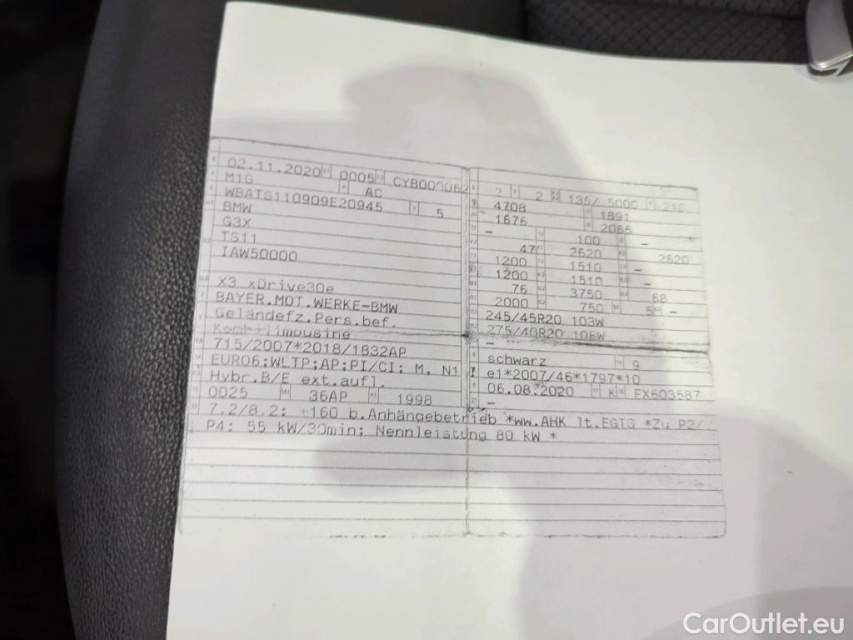 02.11.2020 0005 CYB000062
M1G AC
WBATS110909E20945 5
BMW
G3X
TS11
IAW50000
X3 xDrive30e
BAYER.MOT.WERKE-BMW
Geländefz.Pers.bef.
Kombilimousine
715/2007*2018/1832AP
EURO6;WLTP;AP;PI/CI; M, N1 I
Hybr.B/E ext.aufl.
0025 36AP 1998
2 135/ 5000 210
4708 1891
1676 2065
- 100 -
47 2620 2620
1200 1510 -
1200 1510
76 3750 68
2000 750 5 -
245/45R20 103W
275/40R20 106W
-
schwarz 9
e1*2007/46*1797*10
06.08.2020 K FX603587
-
7.2/8.2: +160 b.Anhängebetrieb *ww.AHK lt.EGTG *Zu P2/
P4: 55 kW/30min; Nennleistung 80 kW *
CarOutlet.eu